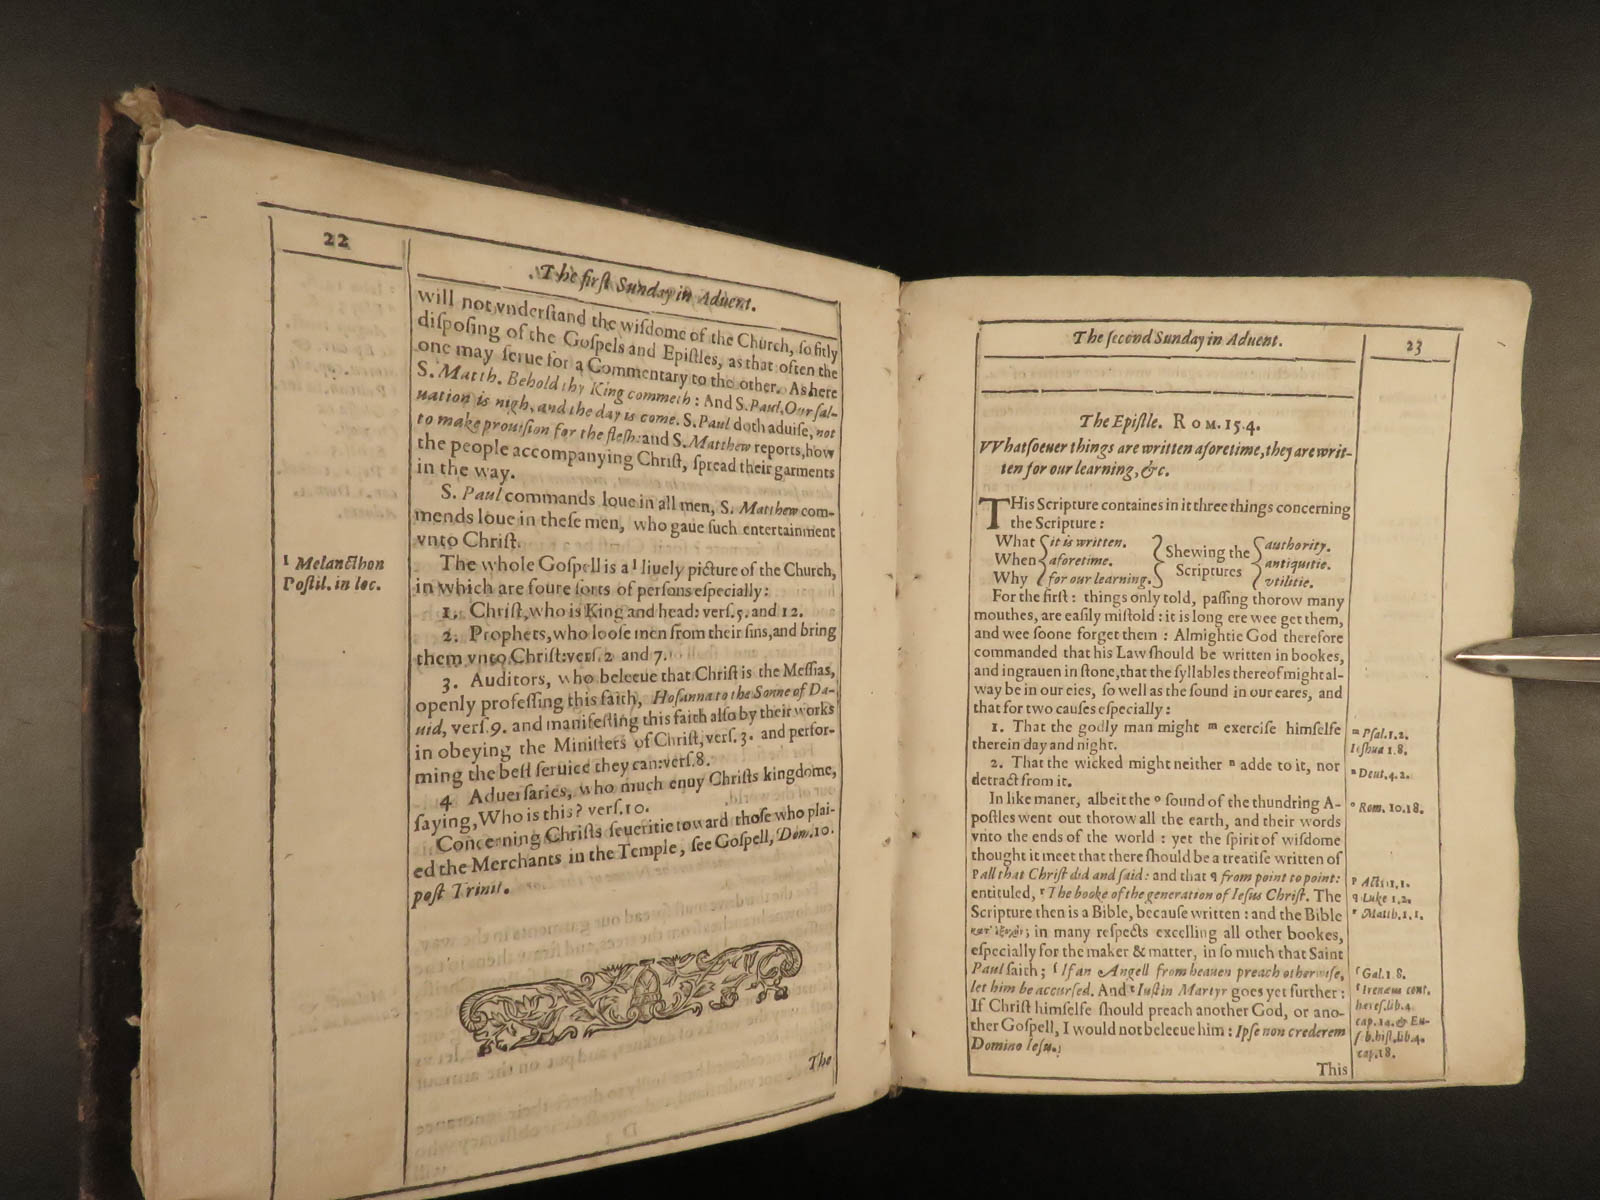 22
The firſt Sunday in Aduent.
will not vnderſtand the wiſdome of the Church, ſo fitly
diſpoſing of the Goſpels and Epiſtles, as that often the
one may ſerue for a Commentary to the other. As here
S. Matth. Behold thy King commeth: And S. Paul, Our ſal-
uation is nigh, and the day is come. S. Paul doth aduiſe, not
to make prouiſion for the fleſh: and S. Matthew reports, how
the people accompanying Chriſt, ſpread their garments
in the way.
S. Paul commands loue in all men, S. Matthew com-
mends loue in theſe men, who gaue ſuch entertainment
vnto Chriſt.
The whole Goſpell is a l liuely picture of the Church,
in which are foure ſorts of perſons eſpecially:
1. Chriſt, who is King and head: verſ. 5. and 12.
2. Prophets, who looſe men from their ſins, and bring
them vnto Chriſt: verſ. 2 and 7.
3. Auditors, who beleeue that Chriſt is the Meſſias,
openly profeſſing this faith, Hoſanna to the Sonne of Da-
uid, verſ. 9. and manifeſting this faith alſo by their works
in obeying the Miniſters of Chriſt, verſ. 3. and perfor-
ming the beſt ſeruice they can: verſ. 8.
4 Aduerſaries, who much enuy Chriſts kingdome,
ſaying, Who is this? verſ. 10.
Concerning Chriſts ſeueritie toward thoſe who plai-
ed the Merchants in the Temple, ſee Goſpell, Dom. 10.
poſt Trinit.
The
l Melancthon
Poſtil. in loc.
The ſecond Sunday in Aduent.
23
The Epiſtle. ROM. 15.4.
VVhatſoeuer things are written aforetime, they are writ-
ten for our learning, &c.
THis Scripture containes in it three things concerning
the Scripture:
What { it is written. } Shewing the { authority.
When { aforetime. } Scriptures { antiquitie.
Why { for our learning. } { vtilitie.
For the firſt: things only told, paſſing thorow many
mouthes, are eaſily miſtold: it is long ere wee get them,
and wee ſoone forget them: Almightie God therefore
commanded that his Law ſhould be written in bookes,
and ingrauen in ſtone, that the ſyllables thereof might al-
way be in our eies, ſo well as the ſound in our eares, and
that for two cauſes eſpecially:
1. That the godly man might m exerciſe himſelfe
therein day and night.
2. That the wicked might neither n adde to it, nor
detract from it.
In like maner, albeit the o ſound of the thundring A-
poſtles went out thorow all the earth, and their words
vnto the ends of the world: yet the ſpirit of wiſdome
thought it meet that there ſhould be a treatiſe written of
p all that Chriſt did and ſaid: and that q from point to point:
entituled, r The booke of the generation of Ieſus Chriſt. The
Scripture then is a Bible, becauſe written: and the Bible
κατ' ἐξοχὴν; in many reſpects excelling all other bookes,
eſpecially for the maker & matter, in ſo much that Saint
Paul ſaith; ſ If an Angell from heauen preach otherwiſe,
let him be accurſed. And t Iuſtin Martyr goes yet further:
If Chriſt himſelfe ſhould preach another God, or ano-
ther Goſpell, I would not beleeue him: Ipſe non crederem
Domino Ieſu.
This
m Pſal. 1.2.
Ioſhua 1.8.
n Deut. 4.2.
o Rom. 10.18.
p Act. 1.1.
q Luke 1.2.
r Matth. 1.1.
ſ Gal. 1.8.
t Irenæus cont.
hereſ. lib. 4.
cap. 14. & Eu-
ſeb. hiſt. lib. 4.
cap. 18.